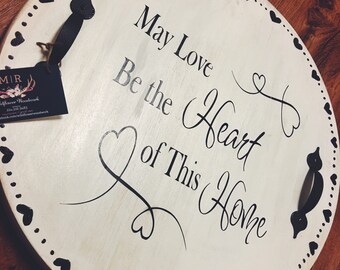 May Love
Be the Heart
of This Home
M|R